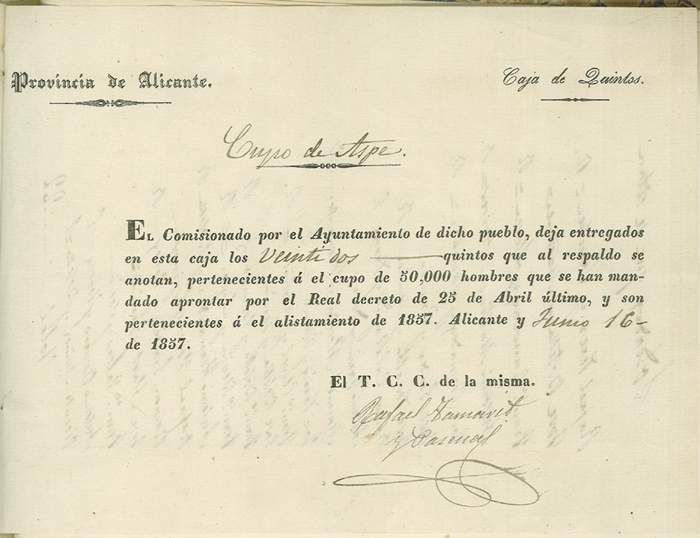 Provincia de Alicante.
Caja de Quintos.
Cupo de Aspe.
EL Comisionado por el Ayuntamiento de dicho pueblo, deja entregados
en esta caja los Veinti dos quintos que al respaldo se
anotan, pertenecientes á el cupo de 50,000 hombres que se han man-
dado aprontar por el Real decreto de 25 de Abril último, y son
pertenecientes á el alistamiento de 1857. Alicante y Junio 16
de 1857.
El T. C. C. de la misma.
Rafael Tamarit
y Pascual